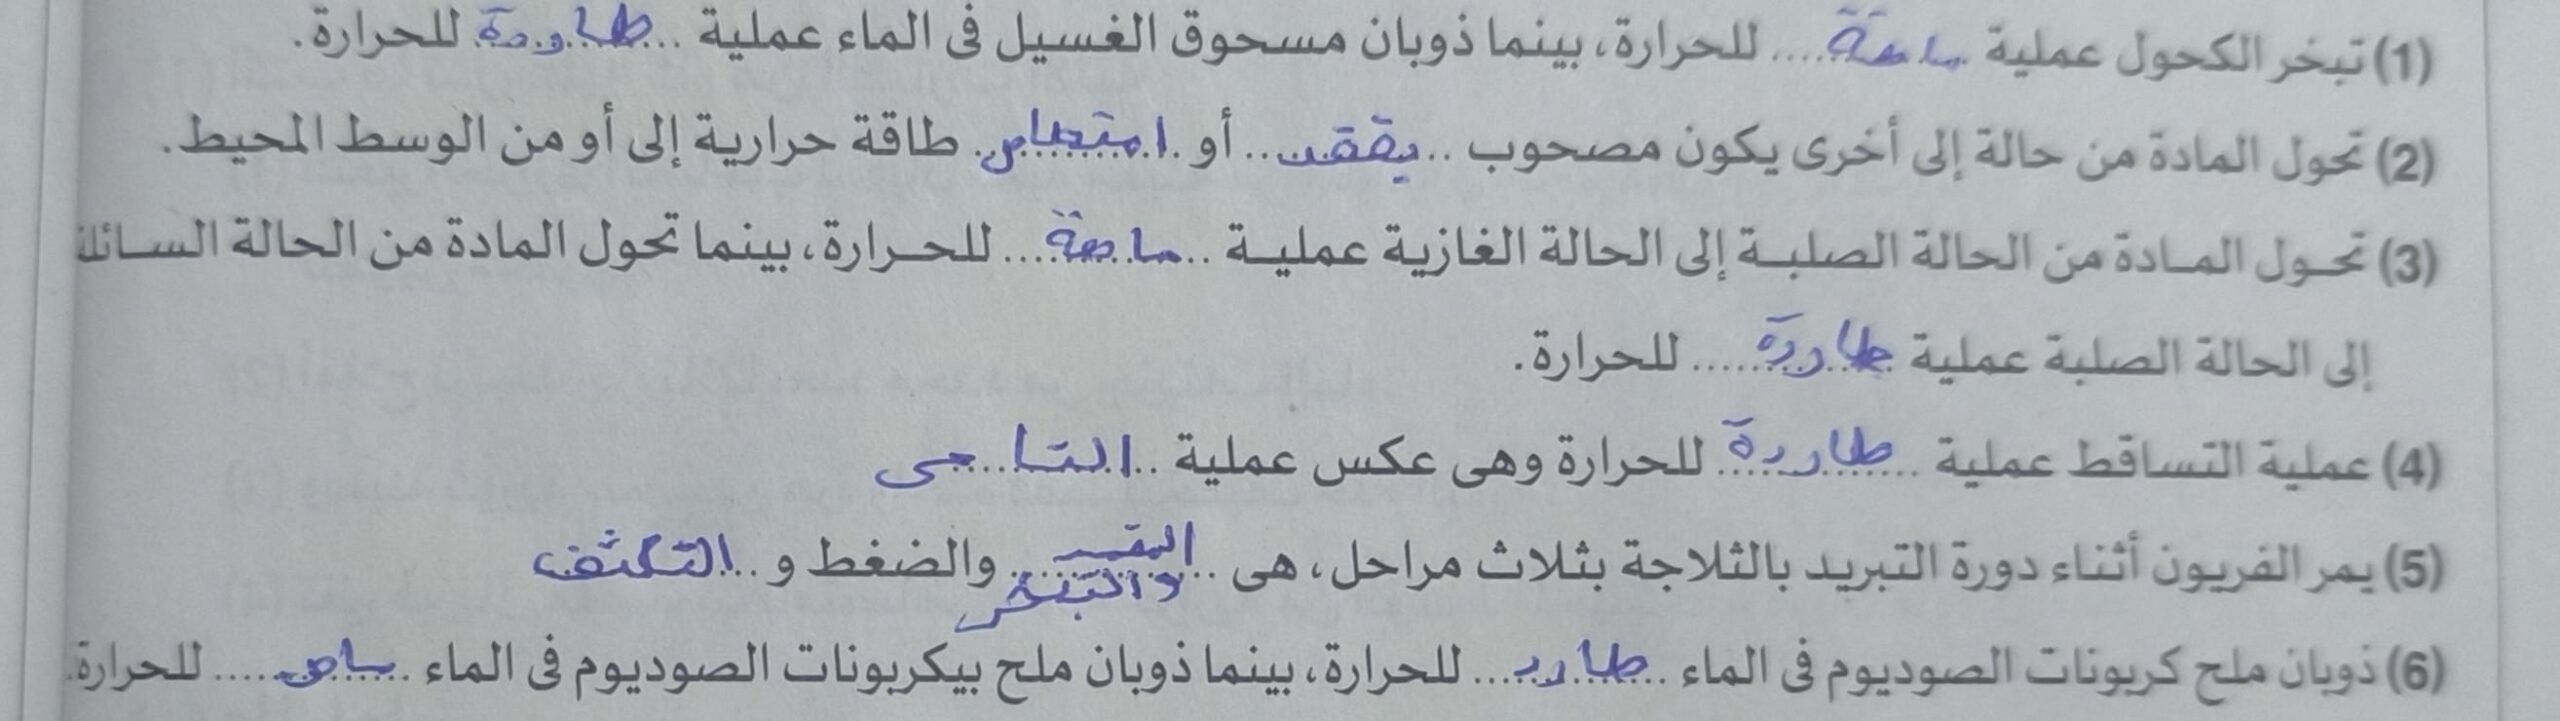 (1) تبخر الكحول عملية ماصة للحرارة، بينما ذوبان مسحوق الغسيل فى الماء عملية طاردة للحرارة.
(2) تحول المادة من حالة إلى أخرى يكون مصحوب بفقد أو امتصاص طاقة حرارية إلى أو من الوسط المحيط.
(3) تحول المادة من الحالة الصلبة إلى الحالة الغازية عملية ماصة للحرارة، بينما تحول المادة من الحالة السائلة
إلى الحالة الصلبة عملية طاردة للحرارة.
(4) عملية التساقط عملية طاردة للحرارة وهى عكس عملية
(5) يمر الفريون أثناء دورة التبريد بالثلاجة بثلاث مراحل، هى والتبخر والضغط و التكثف
(6) ذوبان ملح كربونات الصوديوم فى الماء طارد للحرارة، بينما ذوبان ملح بيكربونات الصوديوم فى الماء ماص للحرارة.